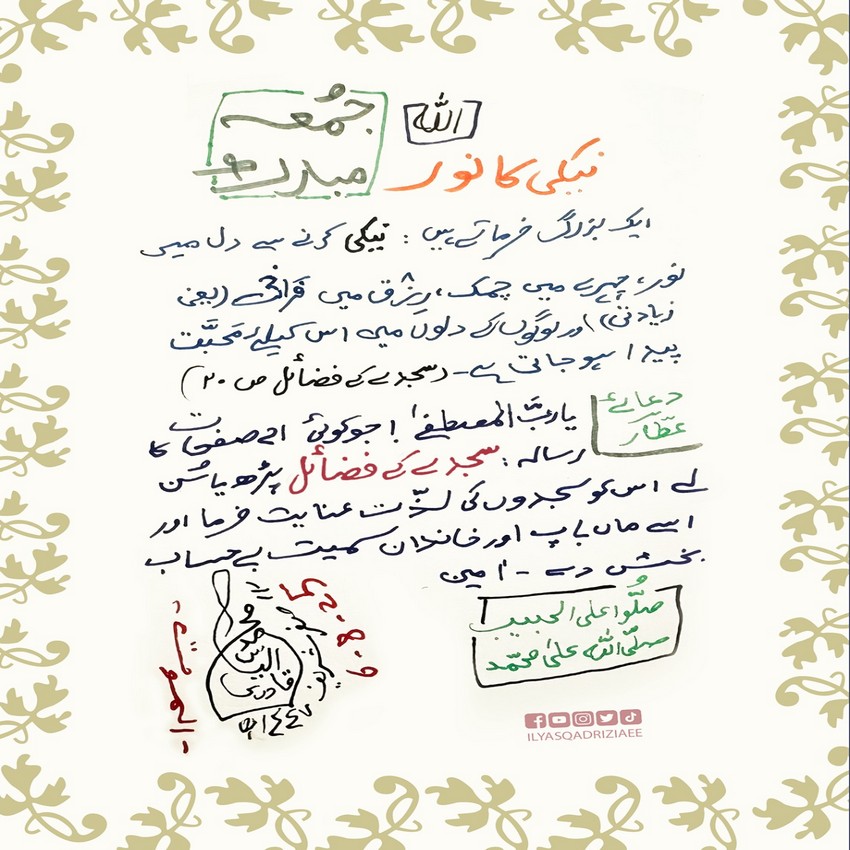 الله
جمعہ
مبارک
نیکی کا نور
ایک بزرگ فرماتے ہیں : نیکی کرنے سے دل میں
نور، چہرے میں چمک، رِزق میں فراخی (یعنی
زیادتی) اور لوگوں کے دلوں میں اس کیلئے مَحبَّت
پیدا ہو جاتی ہے۔ (سجدے کے فضائل ص ۲۰)
دعائے
عطّار
یاربَّ المصطفےٰ! جو کوئی صفحات کا
رسالہ: سجدے کے فضائل پڑھ یا سُن
لے اس کو سجدوں کی لذّت عنایت فرما اور
اسے ماں باپ اور خاندان سمیت بے حساب
بخش دے - اٰمین
صَلُّوا علی الحبیب
صلَّی اللہ علیٰ محمّد
محمد
الیاس
قادری
ILYASQADRIZIAEE